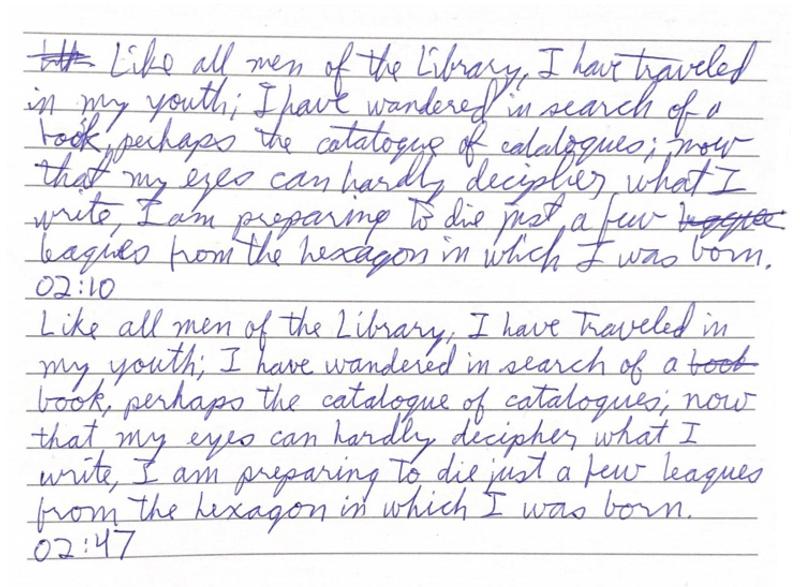 Like all men of the Library, I have traveled
in my youth; I have wandered in search of a
book, perhaps the catalogue of catalogues; now
that my eyes can hardly decipher what I
write, I am preparing to die just a few
leagues from the hexagon in which I was born.
02:10
Like all men of the Library, I have traveled in
my youth; I have wandered in search of a book
book, perhaps the catalogue of catalogues; now
that my eyes can hardly decipher what I
write, I am preparing to die just a few leagues
from the hexagon in which I was born.
02:47